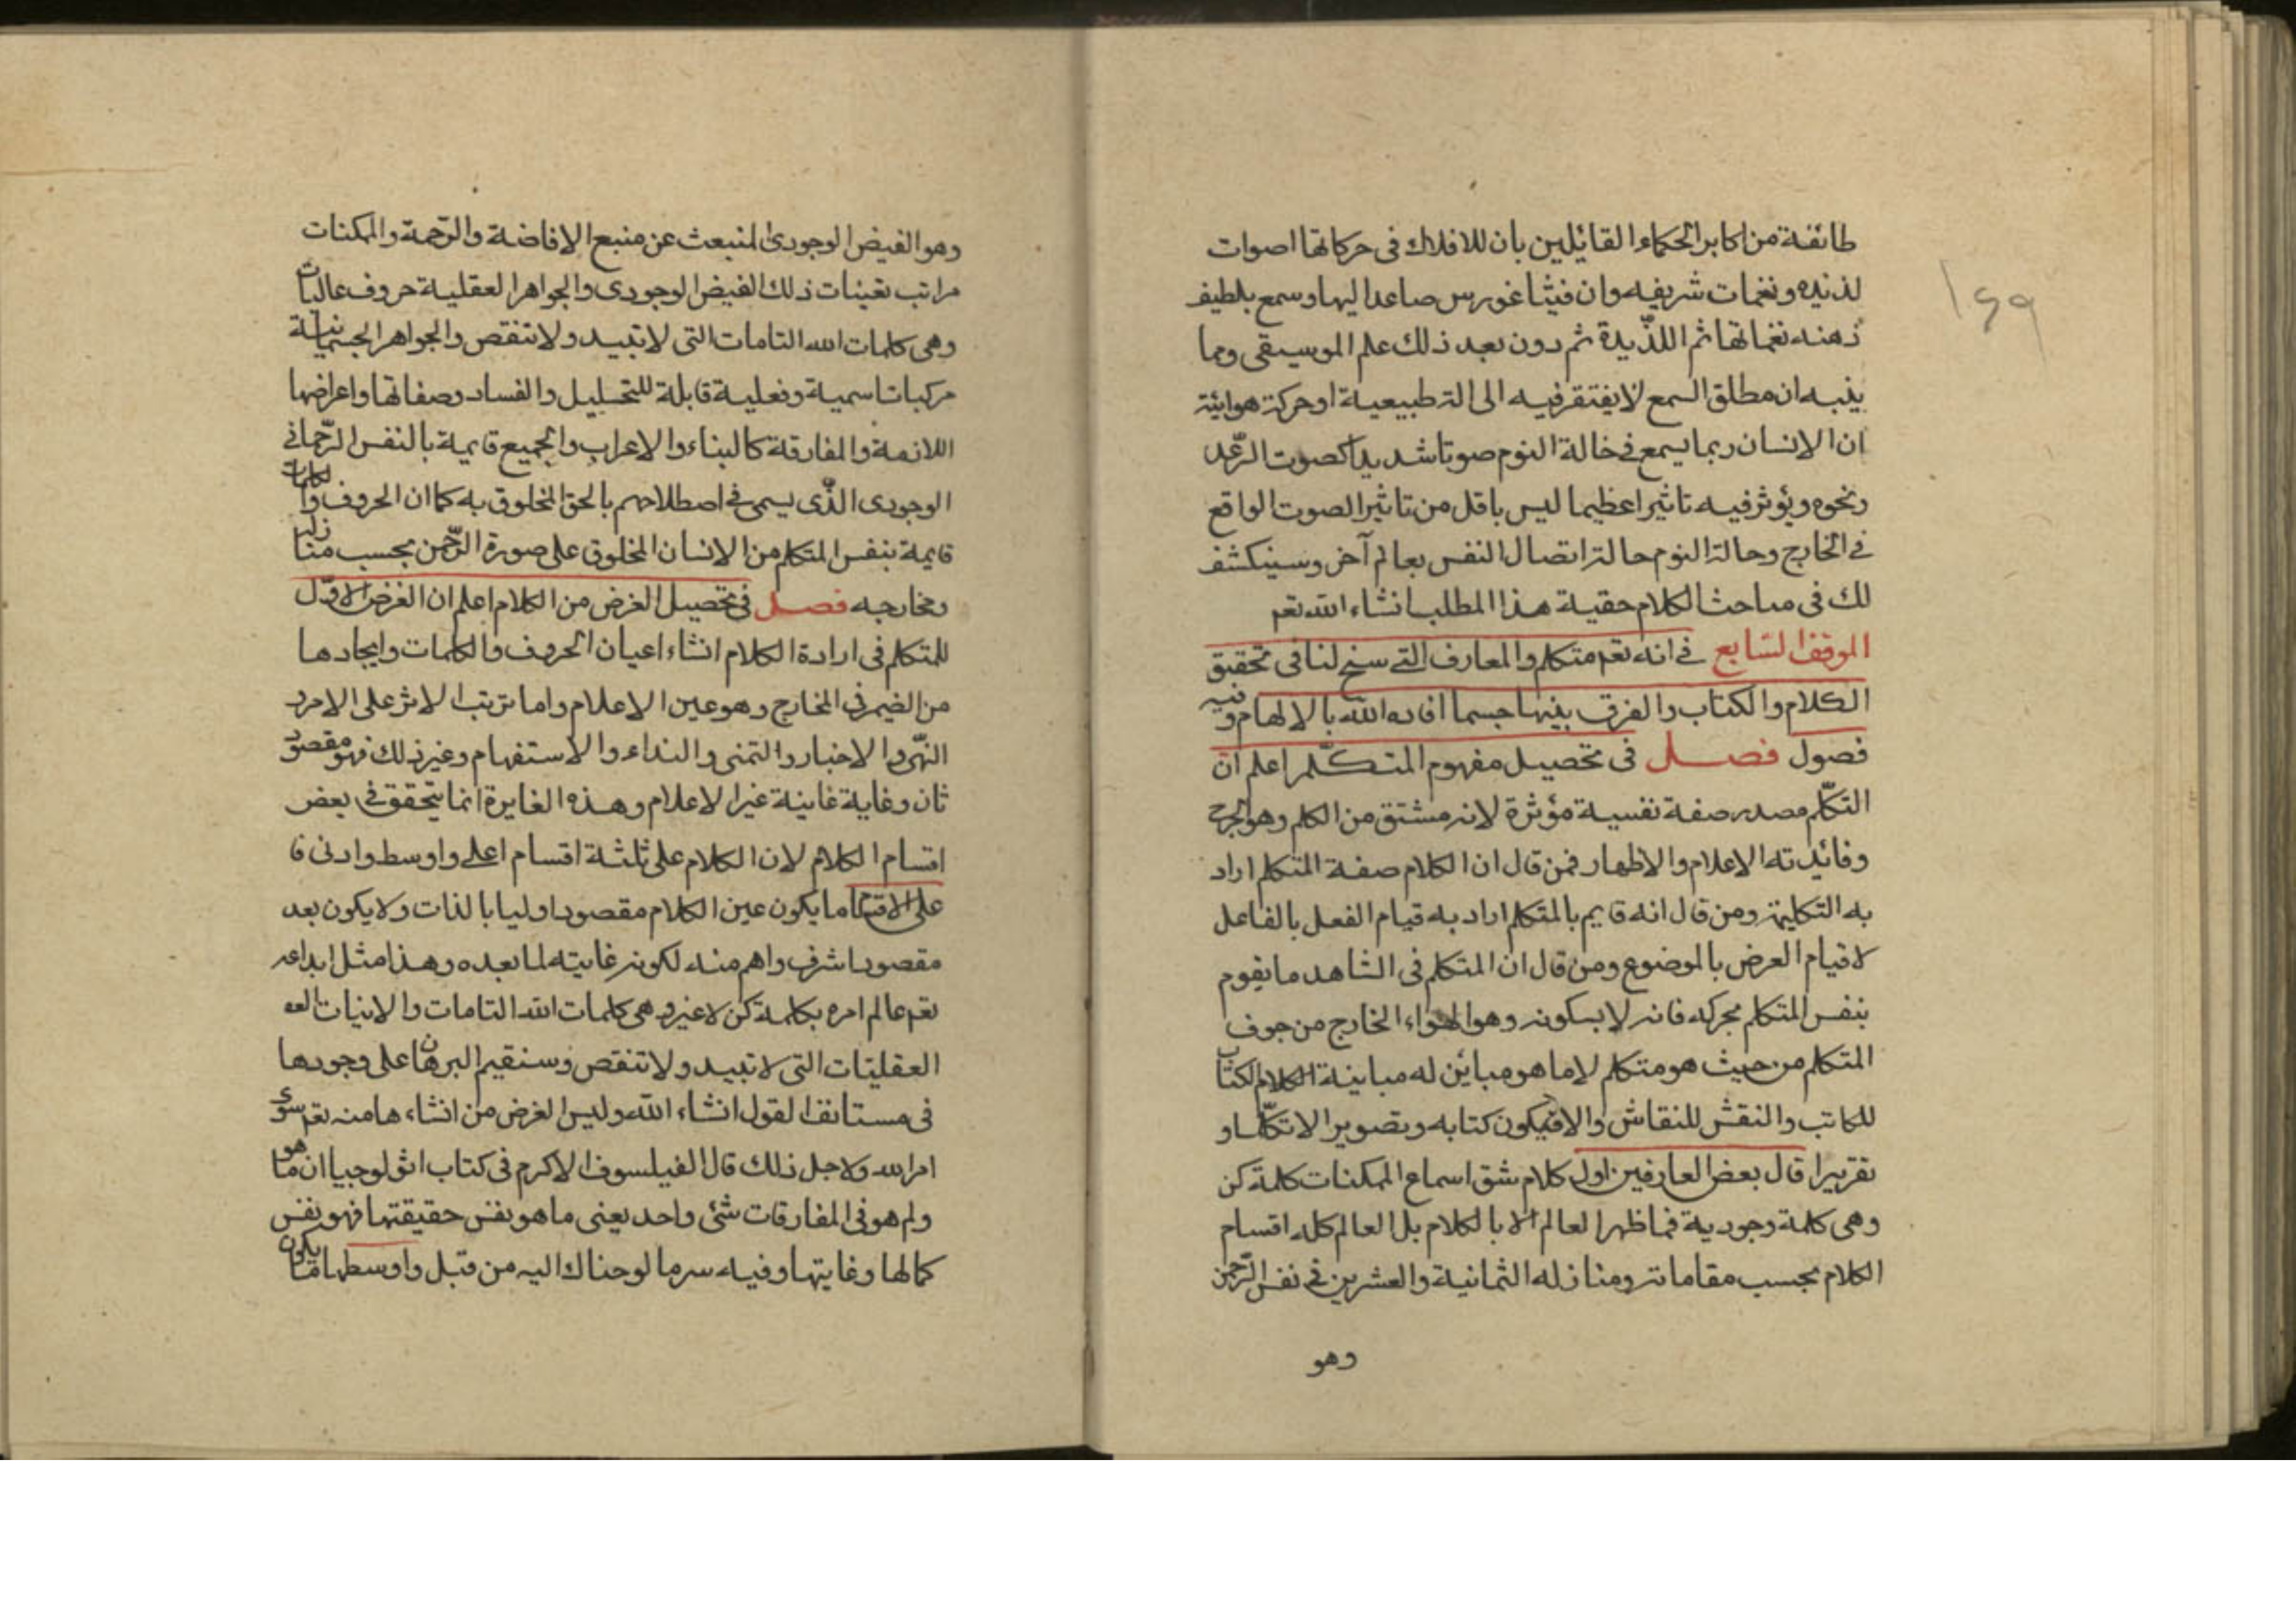 ١٤٩
طائفة من اكابر الحكماء القائلين بان للافلاك فى حركاتها اصوات
لذيذه ونغمات شريفه وان فيثاغورس صاعدا اليها وسمع بلطيف
ذهنه نغماتها ثم اللذيدة ثم دون بعد ذلك علم الموسيقى ومما
ينبه ان مطلق السمع لا يفتقر فيه الى الة طبيعية او حركة هوائية
ان الانسان ربما يسمع فى حالة النوم صوتا شديدا كصوت الرّعد
ونحوه ويؤثر فيه تاثيرا عظيما ليس باقل من تاثير الصوت الواقع
فى الخارج وحالة النوم حالة اتصال النفس بعالم آخر وسينكشف
لك فى مباحث الكلام حقية هذا المطلب انشاء الله تعم
الموقف السّابع فى انه تعم متكلم والمعارف التى سنح لنا فى تحقيق
الكلام والكتاب والفرق بينهما حسبما افاده الله بالالهام وفيه
فصول فصل فى تحصيل مفهوم المتكلّم اعلم انّ
التكلّم مصدر صفة نفسية مؤثرة لانه مشتق من الكلم وهو الجرح
وفائدته الاعلام والاظهار فمن قال ان الكلام صفة المتكلم اراد
به التكلمية ومن قال انه قايم بالمتكلم اراد به قيام الفعل بالفاعل
لا قيام العرض بالموضوع ومن قال ان المتكلم فى الشاهد ما يقوم
بنفس المتكلم بحركه فانه لا بسكونه وهو الهواء الخارج من جوف
المتكلم من حيث هو متكلم لا ما هو مباين له مباينة الكلام الكتاب
للكاتب والنقش للنقاش والا فيكون كتابه وتصويرا لا تكلّما و
تقريرا قال بعض العارفين اول كلام شق اسماع الممكنات كلمة كن
وهى كلمة وجودية فما ظهر العالم الا بالكلام بل العالم كله اقسام
الكلام بحسب مقاماته ومنازله الثمانية والعشرين فى نفس الرّحمن
وهو
وهو الفيض الوجودى المنبعث عن منبع الافاضة والرّحمة والممكنات
مراتب تعينات ذلك الفيض الوجودى والجواهر العقلية حروف عاليات
وهى كلمات الله التامات التى لا تبيد ولا تنقص والجواهر الجسمانية
مركبات اسمية وفعلية قابلة للتحليل والفساد وصفاتها واعراضها
اللازمة والمفارقة كالبناء والاعراب والجميع قايمة بالنفس الرّحمانى
الوجودى الذّى يسمى فى اصطلاحهم بالحق المخلوق به كما ان الحروف والكلمات
قايمة بنفس المتكلم من الانسان المخلوق على صورة الرّحمن بحسب منازله
ومخارجه فصل فى تحصيل الغرض من الكلام اعلم ان الغرض الاوّل
للمتكلم فى ارادة الكلام انشاء اعيان الحروف والكلمات وايجادها
من الضمير فى المخارج وهو عين الاعلام واما ترتب الاثر على الامر و
النّهى والاخبار والتمنى والنداء والاستفهام وغير ذلك فهو مقصود
ثان وغاية غاينة غير الاعلام وهذه المغايرة انما يتحقق فى بعض
اقسام الكلام لان الكلام على ثلثة اقسام اعلى واوسط وادنى فا
على الاقسام ما يكون عين الكلام مقصودا وليا بالذات ولا يكون بعد
مقصودا شرف واهم منه لكونه غايته لما بعده وهذا مثل ابداعه
تعم عالم امره بكلمة كن لا غير وهى كلمات الله التامات والانيات
العقليّات التى لا تبيد ولا تنقص وسنقيم البرهان على وجودها
فى مستانف القول انشاء الله وليس الغرض من انشاءها منه تعم سوى
امر الله ولاجل ذلك قال الفيلسوف الاكرم فى كتاب اثولوجيا ان ما هو
ولم هو فى المفارقات شئ واحد يعنى ما هو نفس حقيقتها فهو نفس
كمالها وغايتها وفيه سر ما لوحناك اليه من قبل واوسطها ما يكون